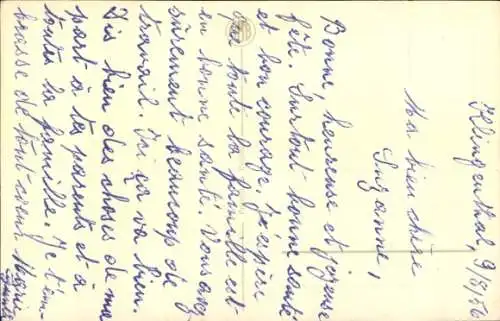 Klingenthal, 9/8/56
Ma bien chère
Suzanne,
Bonne, heureuse et joyeuse
fête. Surtout bonne santé
et bon courage. J'espère
que toute la famille est
en bonne santé. Vous avez
sûrement beaucoup de
travail. Ici ça va bien.
Dis bien des choses de ma
part à tes parents et à
toute la famille. Je t'em-
brasse de tout cœur. Marie